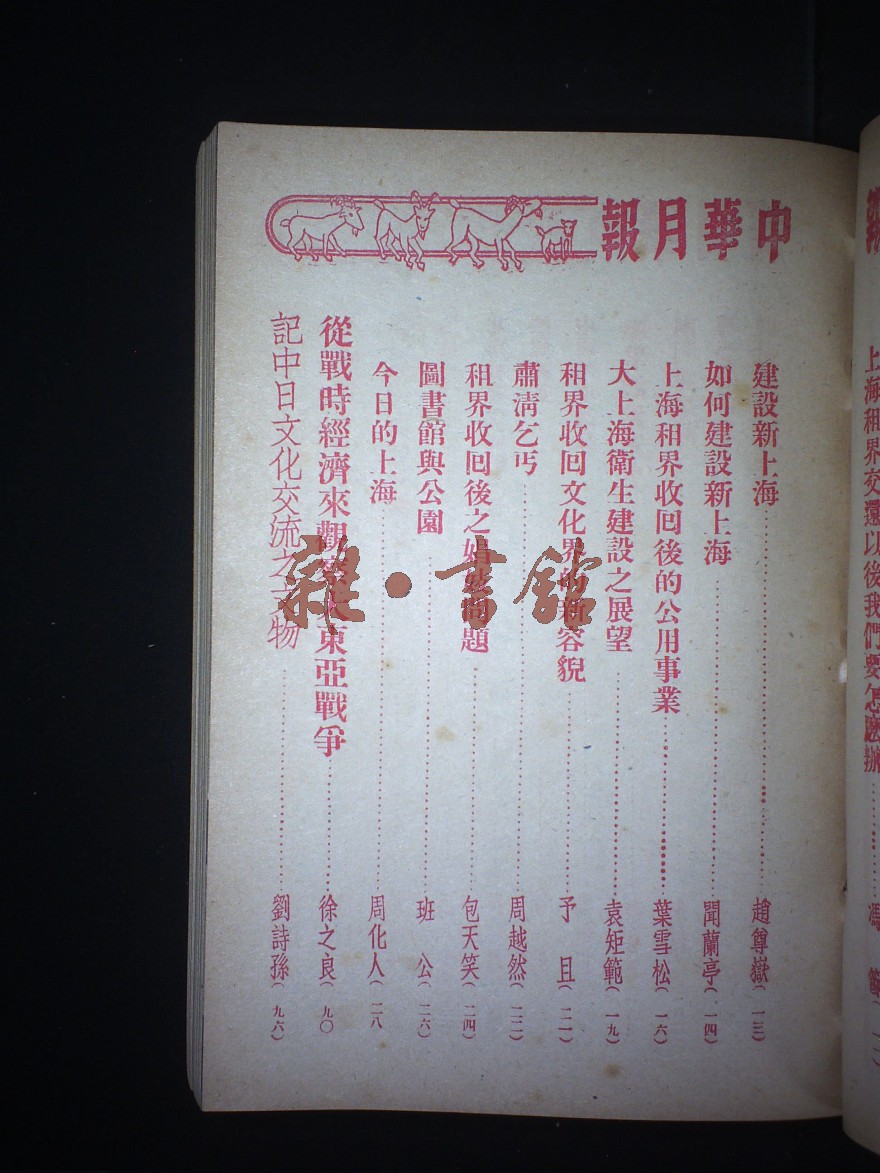 中華月報
建設新上海……趙尊嶽(一三)
如何建設新上海……聞蘭亭(一四)
上海租界收回後的公用事業……葉雪松(一六)
大上海衛生建設之展望……袁矩範(一九)
租界收回文化界的新容貌……予且(二一)
肅清乞丐……周越然(二二)
租界收回後之娼妓問題……包天笑(二四)
圖書館與公園……班公(二六)
今日的上海……周化人(二八
從戰時經濟來觀察大東亞戰爭……徐之良(九〇
記中日文化交流之文物……劉詩孫(九六)
雜·書館
上海租界交還以後我們要怎麽辦……馮節